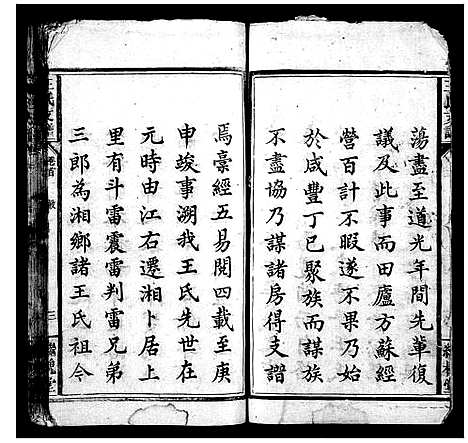 蕩盡至道光年間先輩復
議及此事而田廬方蘇經
營百計不暇遂不果乃始
於咸豐丁巳聚族而謀族
不盡協乃謀諸房得支譜
焉稾經五易閱四載至庚
申竣事溯我王氏先世在
元時由江右遷湘卜居上
里有斗雷震雷判雷兄弟
三郎為湘鄉諸王氏祖今
王氏支譜
卷首
三